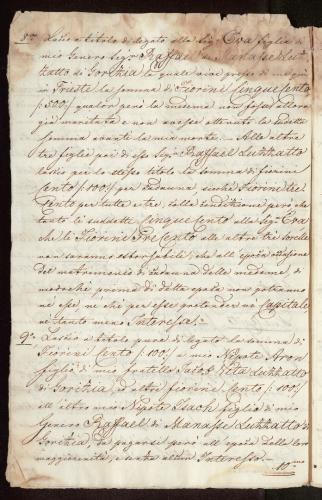 8vo Lascio a titolo di legato alla Sigra Eva figlia di
mio Genero Sigr Raffael di Manasse Luz-
zatto di Gorizia la quale vive presso di me qui in
Trieste la somma di Fiorini Cinquecento
f: 500/: qualora però la medesima non fosse allora
già maritata e non avesse ottenuto la suddetta
somma avanti la mia morte. – Alle altre
tre figlie poi di esso Sigr Raffael Luzzatto
lascio per lo stesso titolo la somma di fiorini
Cento f: 100/: per cadauna sicché Fiorini Tre
Cento per tutte e tre, colla condizione però che
tanto li suddetti Cinque Cento alla Sigra Eva
che li Fiorini Tre Cento alle altre tre sorelle
non saranno esborsabili, che all'epoca
del matrimonio di cadauna delle medesime, di
modoché prima di detta epoca non potranno
né esse, né chi per esse pretendere né Capitale
né tanto meno Interessi. –
9no Lascio a titolo pure di legato la somma di
Fiorini Cento f: 100/: a mio Nipote Aron
figlio di mio fratello Jacob Vita Luzzatto
di Gorizia, ed altri fiorini Cento f: 100/:
all'altro mio Nipote Isach figlio di mio
Genero Raffael di Manasse Luzzatto di
Gorizia, da pagarsi però all'epoca della loro
maggiorennità, e senza alcun Interesse. –
10mo